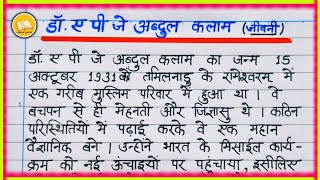 डॉ. ए पी जे अब्दुल कलाम (जीवनी)
डॉ. ए पी जे अब्दुल कलाम का जन्म 15
अक्टूबर 1931 को तमिलनाडु के रामेश्वरम में
एक गरीब मुस्लिम परिवार में हुआ था। वे
बचपन से ही मेहनती और जिज्ञासु थे। कठिन
परिस्थितियों में पढ़ाई करके वे एक महान
वैज्ञानिक बने। उन्होंने भारत के मिसाईल कार्य-
क्रम को नई ऊंचाइयों पर पहुंचाया, इसीलिए